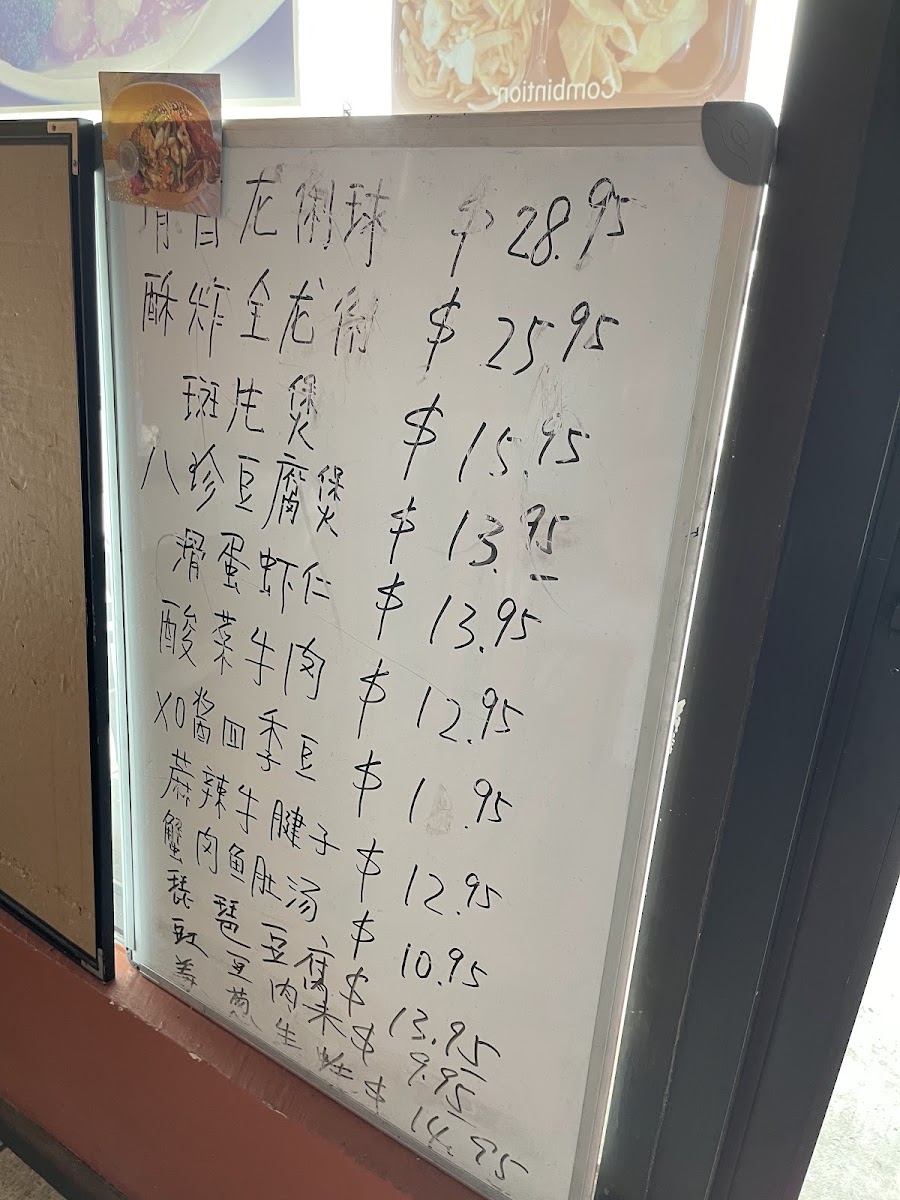 Combintion
龙俐球 $28.95
酥炸全龙俐 $25.95
斑尾煲 $15.95
八珍豆腐煲 $13.95
滑蛋虾仁 $13.95
酸菜牛肉 $12.95
XO酱四季豆 $1 .95
麻辣牛腱子 $12.95
蟹肉鱼肚汤 $10.95
琵琶豆腐 $13.95
豇豆肉末 $9.95
姜葱生蚝 $14.95